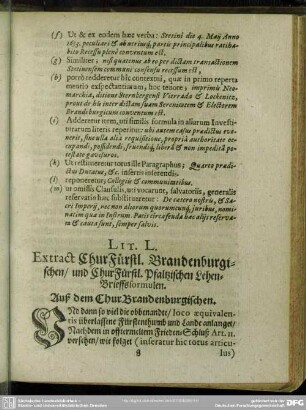 (f) Ut & ex eodem hæc verba: Stetini die 4. Maij Anno
1653. peculiari & ab utriusq; partis principalibus ratiha-
bito Recessu plenè conventum est,
(g) Similiter; nisi quatenus ab eo per dictam transactionem
Stetinensem communi consensu recessum est,
(h) porrò redderetur hîc contextui, quæ in primo reperta
mentio exspectantiarum, hoc tenore; imprimis Neo-
marchia, ditione Sternbergensi Vierrada & Lockenitz,
prout de his inter dictam suam Serenitatem & Electorem
Brandeburgicum conventum est.
(i) Adderetur item, uti similis formula in aliarum Investi-
turarum literis reperitur: ubi autem casus prædictus eve-
nerit, sine ulla alia requisitione, propriâ authoritate oc-
cupandi, possidendi, fruendiq; liberâ & non impeditâ po-
testate gavisuros.
(k) Ut restitueretur totus ille Paragraphus; Quarto prædi-
ctus Ducatus, &c. inseris inferendis.
(l) reponerentur; Collegiis & communitatibus.
(m) ut omissis Clausulis, uti vocarunt, salvatoriis, generalis
reservatio hæc substitueretur: De cætero nostri, & Sa-
cri Imperij, nec non aliorum quorumcunq; juribus, nomi-
natim quæ in Instrum. Pacis circa feuda hæc alijs reserva-
ta & cauta sunt, semper salvis.
LIT. L.
Extract ChurFürstl. Brandenburgi-
schen/ und ChurFürstl. Pfaltzischen Lehen-
Brieffsformulen.
Auß dem ChurBrandenburgischen.
Und dann so viel die obbenandte/ loco æquivalen-
tis überlassene Fürstenthumb und Lande anlanget/
Nachdem in offtermeltem Frieden-Schluß Art. 11.
versehen/ wie folget (inseratur hic totus articu-
g lus)